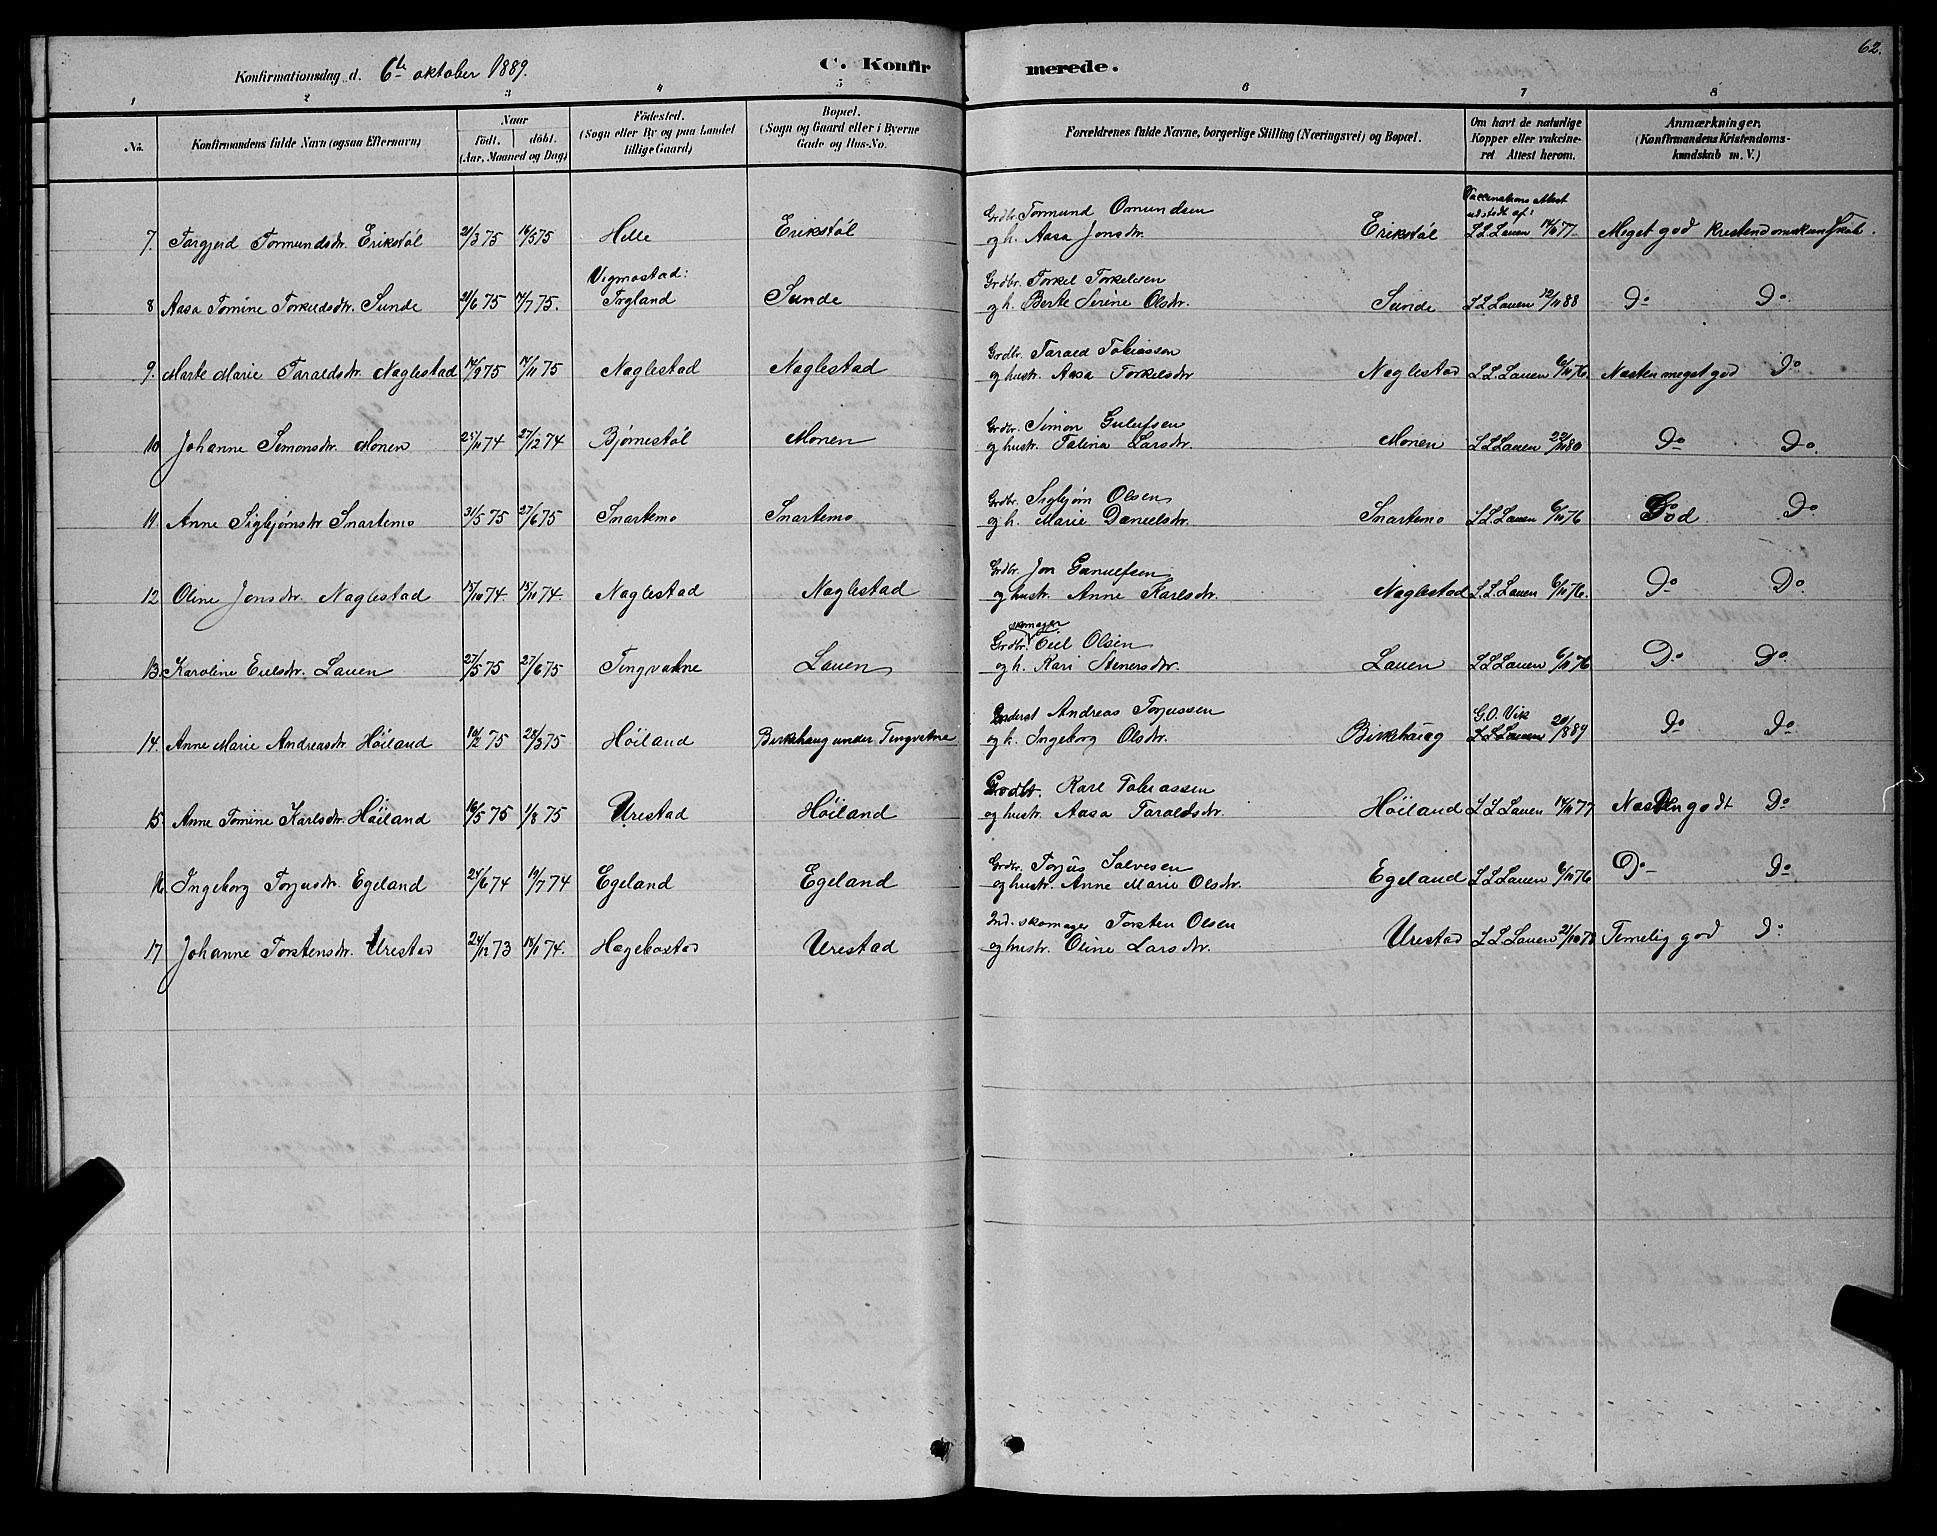 62.
Konfirmationsdag d. 6te oktober 1889. C. Konfirmerede.
1 2 3 4 5 6 7 8
No. Konfirmandens fulde Navn (ogsaa Efternavn) Naar født. døbt. (Aar, Maaned og Dag) Fødested. (Sogn eller By og paa Landet tillige Gaard) Bopæl. (Sogn og Gaard eller i Byerne Gade og Hus-No. Forældrenes fulde Navne, borgerlige Stilling (Næringsvei) og Bopæl. Om havt de naturlige Kopper eller vakcineret Attest herom. Anmærkninger, (Konfirmandens Kristendomskundskab m. V.)
Vaccinations Attest
udstedt af:
Grdbr. Tormund Omundsen
7. Targjerd Tormundsdtr. Erikstøl 21/3 75 16/5 75 Helle Erikstøl og h. Aasa Jonsdtr. Erikstøl L.L. Lauen 14/11 77. Meget god Kristendomskundskab.
Vigmostad: Grdbr. Torkel Torkelsen
8 Aasa Tomine Torkelsdtr. Sunde 21/6 75 7/7 75. Trgland Sunde og h. Berte Serine Olsdtr. Sunde L L Lauen 12/11 88 Do Do
Grdbr. Tarald Tobiassen
9. Marte Marie Taraldsdtr. Naglestad 14/9 75 14/11 75 Naglestad Naglestad og hustr. Aasa Torkelsdtr Naglestad L.L. Lauen 6/11 76. Næsten meget god Do
Grdbr. Simon Gulufsen
10 Johanne Simonsdtr. Monen 25/11 74 27/12 74 Bjørnestøl Monen og hustr. Talina Larsdtr. Monen L L Lauen 22/11 80 Do Do.
Grdbr. Sigbjørn Olsen
11. Anne Sigbjørnsdtr Snartemo 31/5 75 27/6 75 Snartemo Snartemo og h. Marie Danielsdtr. Snartemo L L Lauen 6/11 76 God Do
Grdbr. Jon Gunulfsen
12 Oline Jonsdtr. Naglestad 15/10 74 15/11 74. Naglestad Naglestad og hustr. Anne Karlsdtr. Naglestad L.L. Lauen 6/11 76. Do Do.
skomager
Grdbr. Eiel Olsen
13. Karoline Eielsdtr. Lauen 27/5 75 27/6 75 Tingvatne Lauen og h. Kari Stenersdtr. Lauen L L Lauen 6/11 76 Do Do
Inderst Andreas Torjussen G.O. Vik
14. Anne Marie Andreasdtr. Høiland 10/2 75 28/3 75 Høiland Birkehaug under Tingvatne og h. Ingeborg Olsdtr. Birkehaug L L Lauen 20/8 89 Do Do
Grdbr. Karl Tobiassen
15. Anne Tomine Karlsdtr. Høiland 16/5 75 1/8 75 Urestad Høiland og hustr. Aasa Taraldsdtr. Høiland L L Lauen 14/11 77 Næsten godt Do
Grdbr. Torjus Salvesen
16. Ingeborg Torjusdtr. Egeland 24/6 74 19/7 74 Egeland Egeland og hustr. Anne Marie Olsdtr. Egeland L L Lauen 6/11 76 Do Do
Ind. skomager Torsten Olsen
17 Johanne Torstensdtr. Urestad 24/12 73 18/1 74. Hægebostad Urestad og hustr. Oline Larsdtr. Urestad L L Lauen Temelig god Do